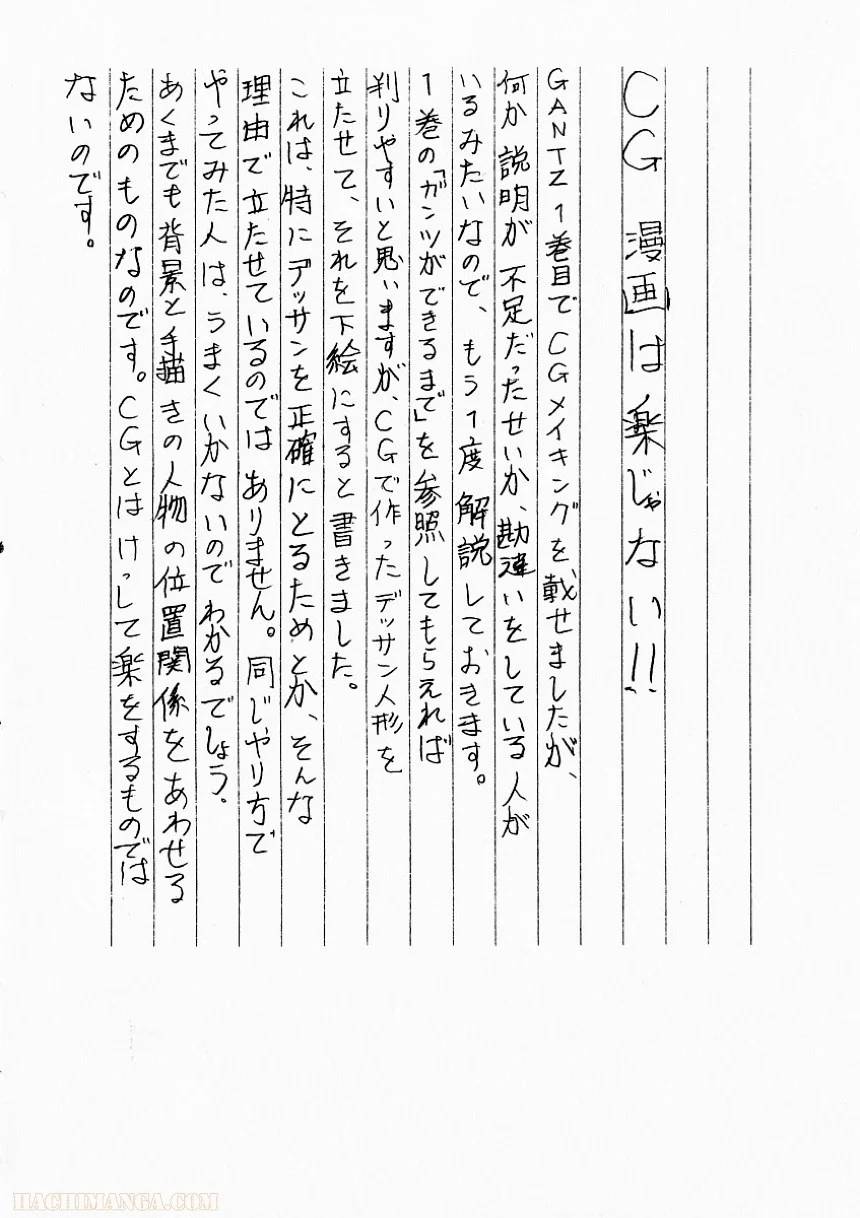 CG 漫画は楽じゃない!!
GANTZ1巻目でCGメイキングを、載せましたが、
何か説明が不足だったせいか、勘違いをしている人が
いるみたいなので、もう1度解説しておきます。
1巻の「ガンツができるまで」を参照してもらえれば
判りやすいと思いますが、CGで作ったデッサン人形を
立たせて、それを下絵にすると書きました。
これは、特にデッサンを正確にとるためとか、そんな
理由で立たせているのではありません。同じやり方で
やってみた人は、うまくいかないのでわかるでしょう.
あくまでも背景と手描きの人物の位置関係をあわせる
ためのものなのです。CGとはけっして楽をするものでは
ないのです。
HACHIMANGA.COM